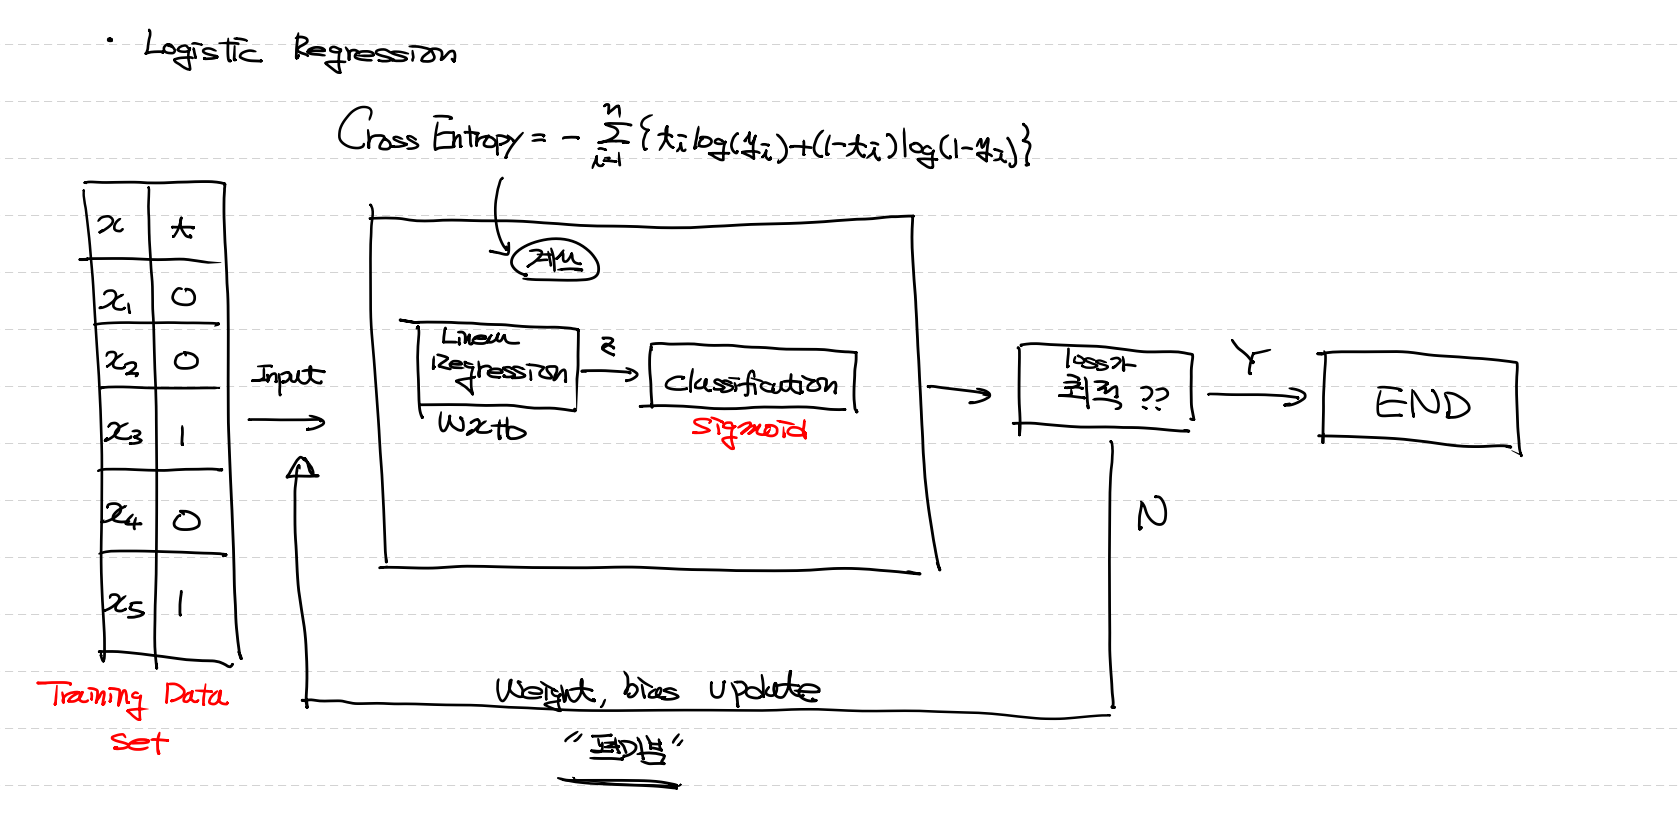 · Logistic Regression
Cross Entropy = - n Σ i=1 {t_i log(y_i)+(1-t_i)log(1-y_i)}
x t
x₁ 0
x₂ 0
x₃ 1
x₄ 0
x₅ 1
Training Data
set
Input
계산
Linear
Regression
Wx+b
z
classification
sigmoid
loss가
최소 ??
Y
END
N
Weight, bias update
"편미분"